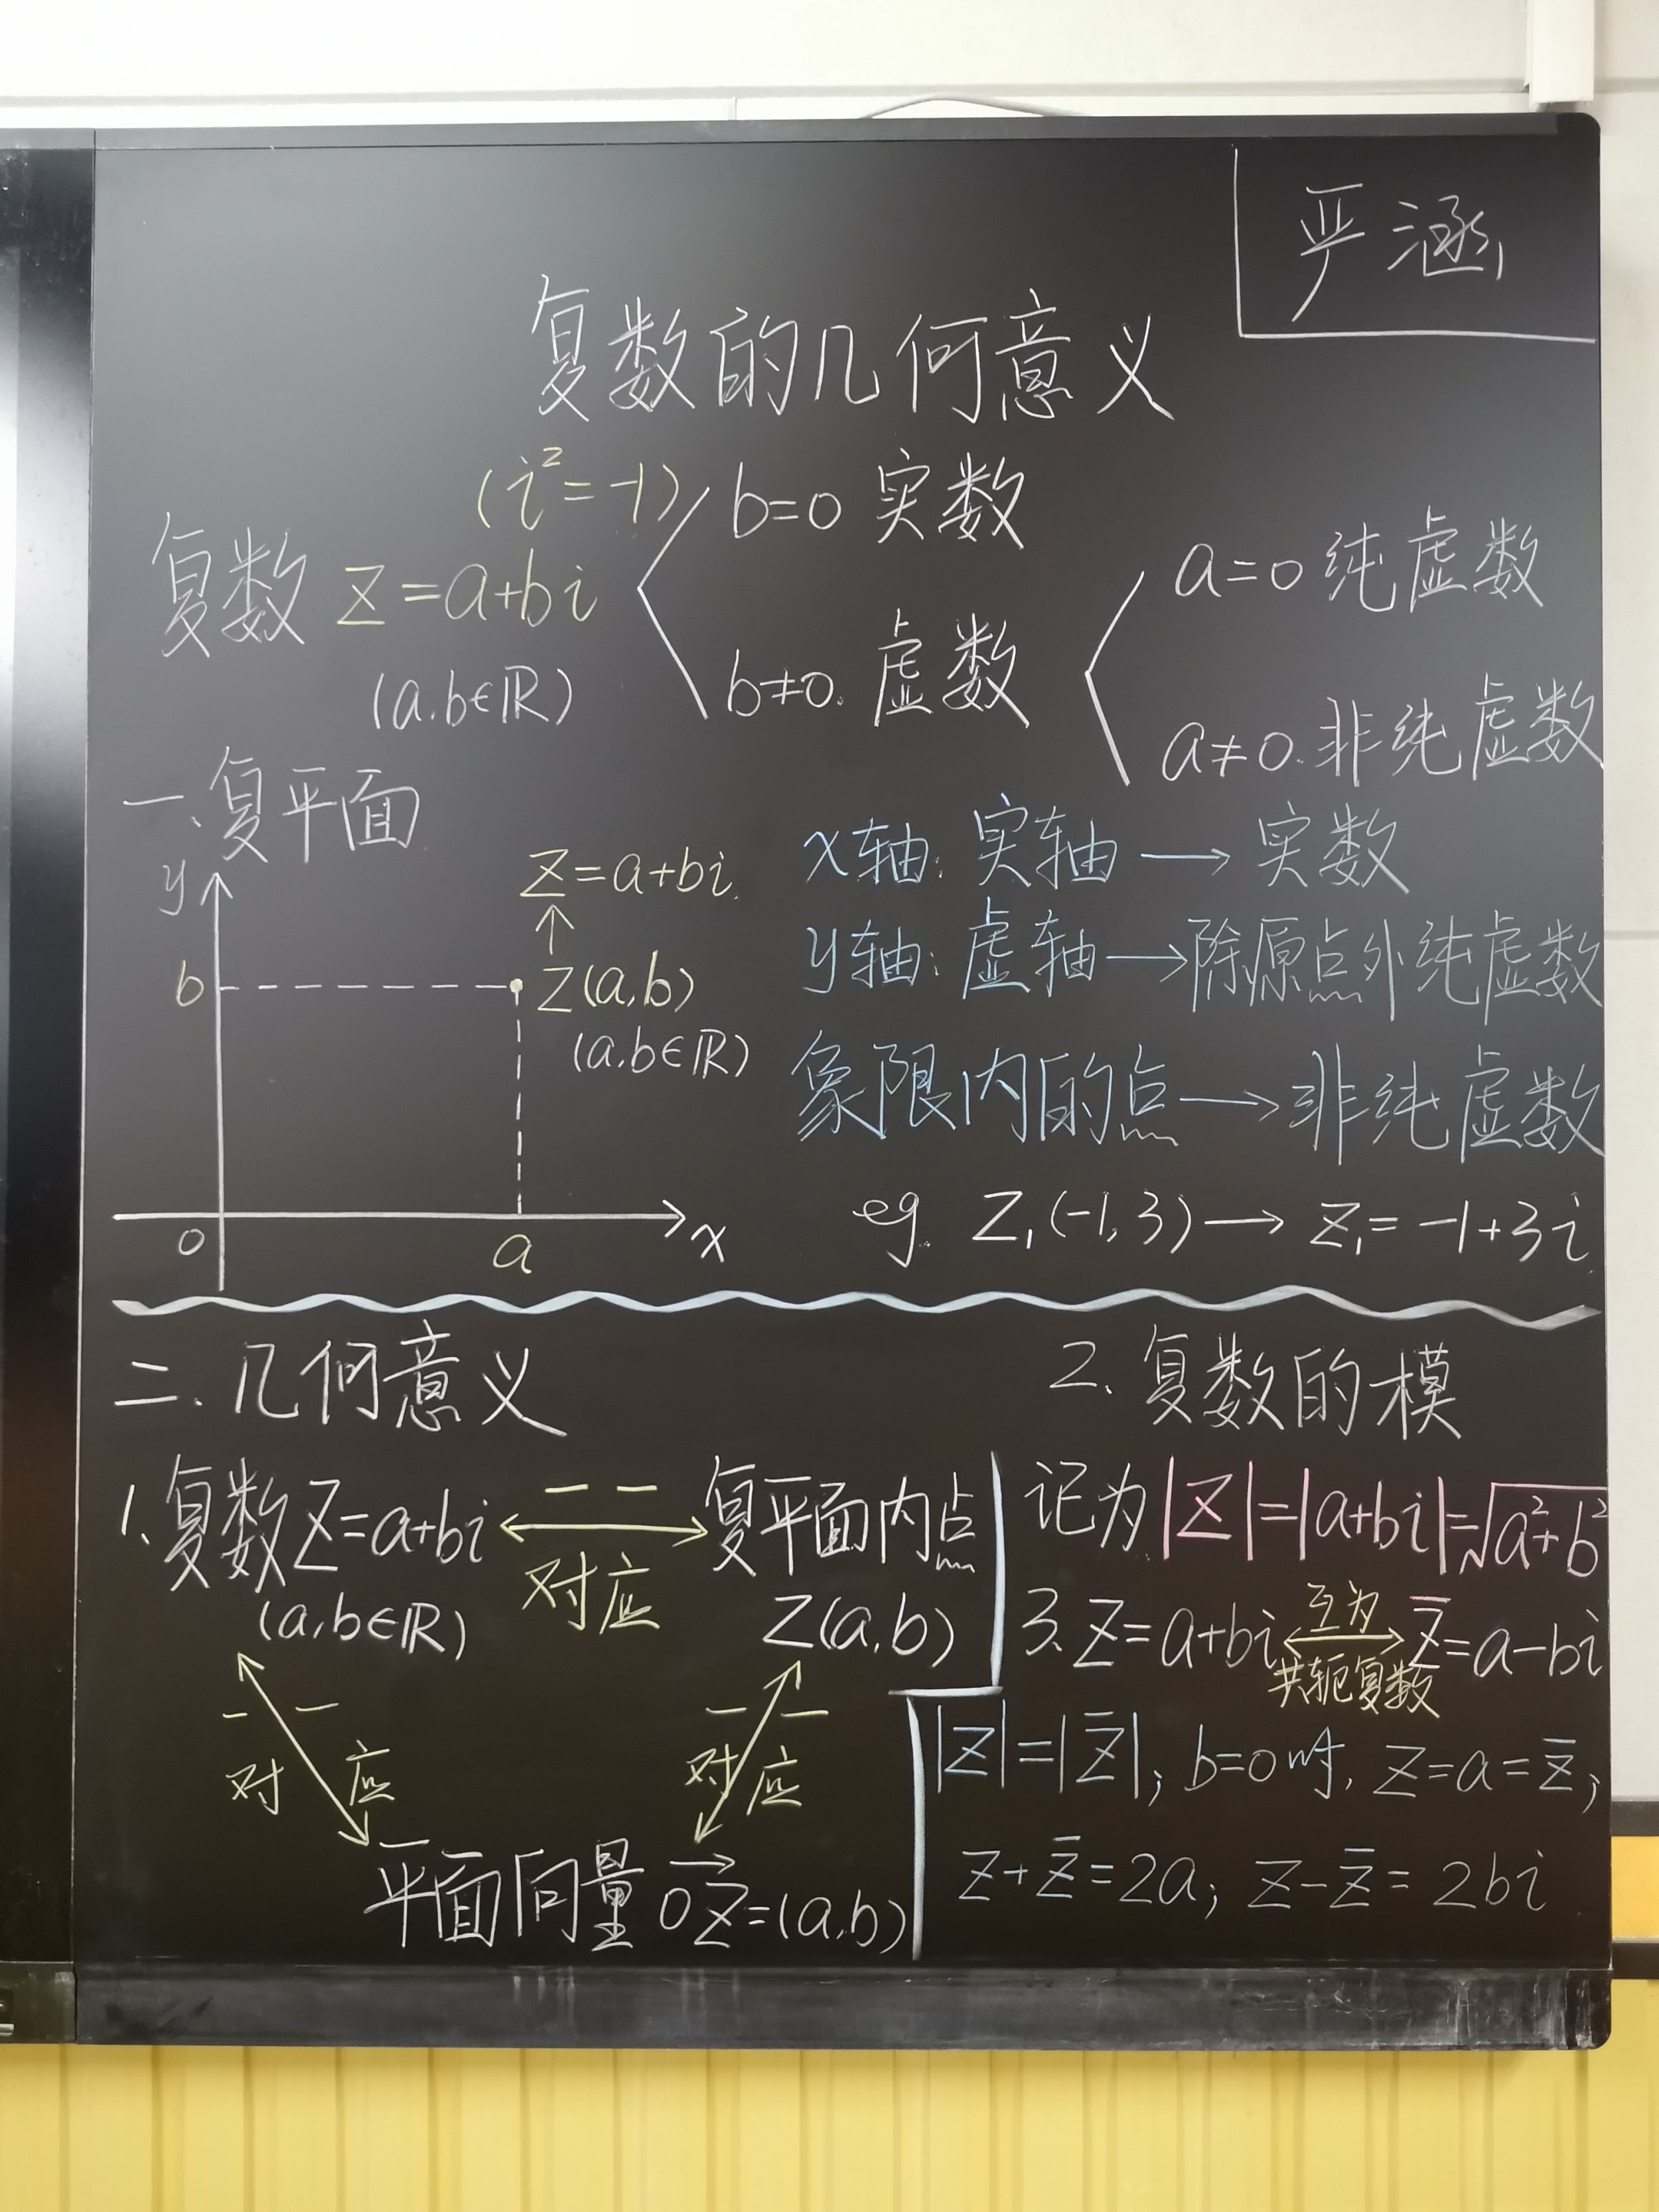 严涵
复数的几何意义
(i²=-1)
复数 z=a+bi
(a.b∈R)
b=0 实数
b≠0. 虚数
a=0 纯虚数
a≠0. 非纯虚数
一.复平面
y
z=a+bi.
↑
b
Z(a,b)
(a.b∈R)
0
a
x
x轴: 实轴 → 实数
y轴: 虚轴 → 除原点外纯虚数
象限内的点 → 非纯虚数
eg. Z₁(-1,3) → z₁=-1+3i
二.几何意义
1.复数z=a+bi
(a,b∈R)
一一
对应
复平面内点
Z(a,b)
一一
对应
一一
对应
平面向量 \overrightarrow{OZ}=(a,b)
2.复数的模
记为|z|=|a+bi|=√(a²+b²)
3.z=a+bi 互为 z̄=a-bi
共轭复数
|z|=|z̄|; b=0时, z=a=z̄;
z+z̄=2a; z-z̄=2bi